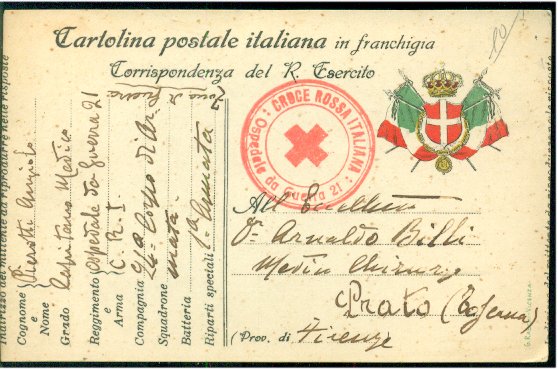 Cartolina postale italiana in franchigia
Corrispondenza del R. Esercito
Zona di Guerra
CROCE ROSSA ITALIANA:
Ospedale da guerra 21
Dr. Arnaldo Billi
Medico Chirurgo
Prato (Toscana)
(Prov. di Firenze
Indirizzo del mittente da riprodurre nelle risposte
Cognome e Nome Pierotti
Grado Capitano Medico
Reggimento e Arma Ospedale da Guerra 21 C. R. I
Compagnia Corpo d'Ar
Squadrone mata
Batteria
Riparti speciali 1a Armata